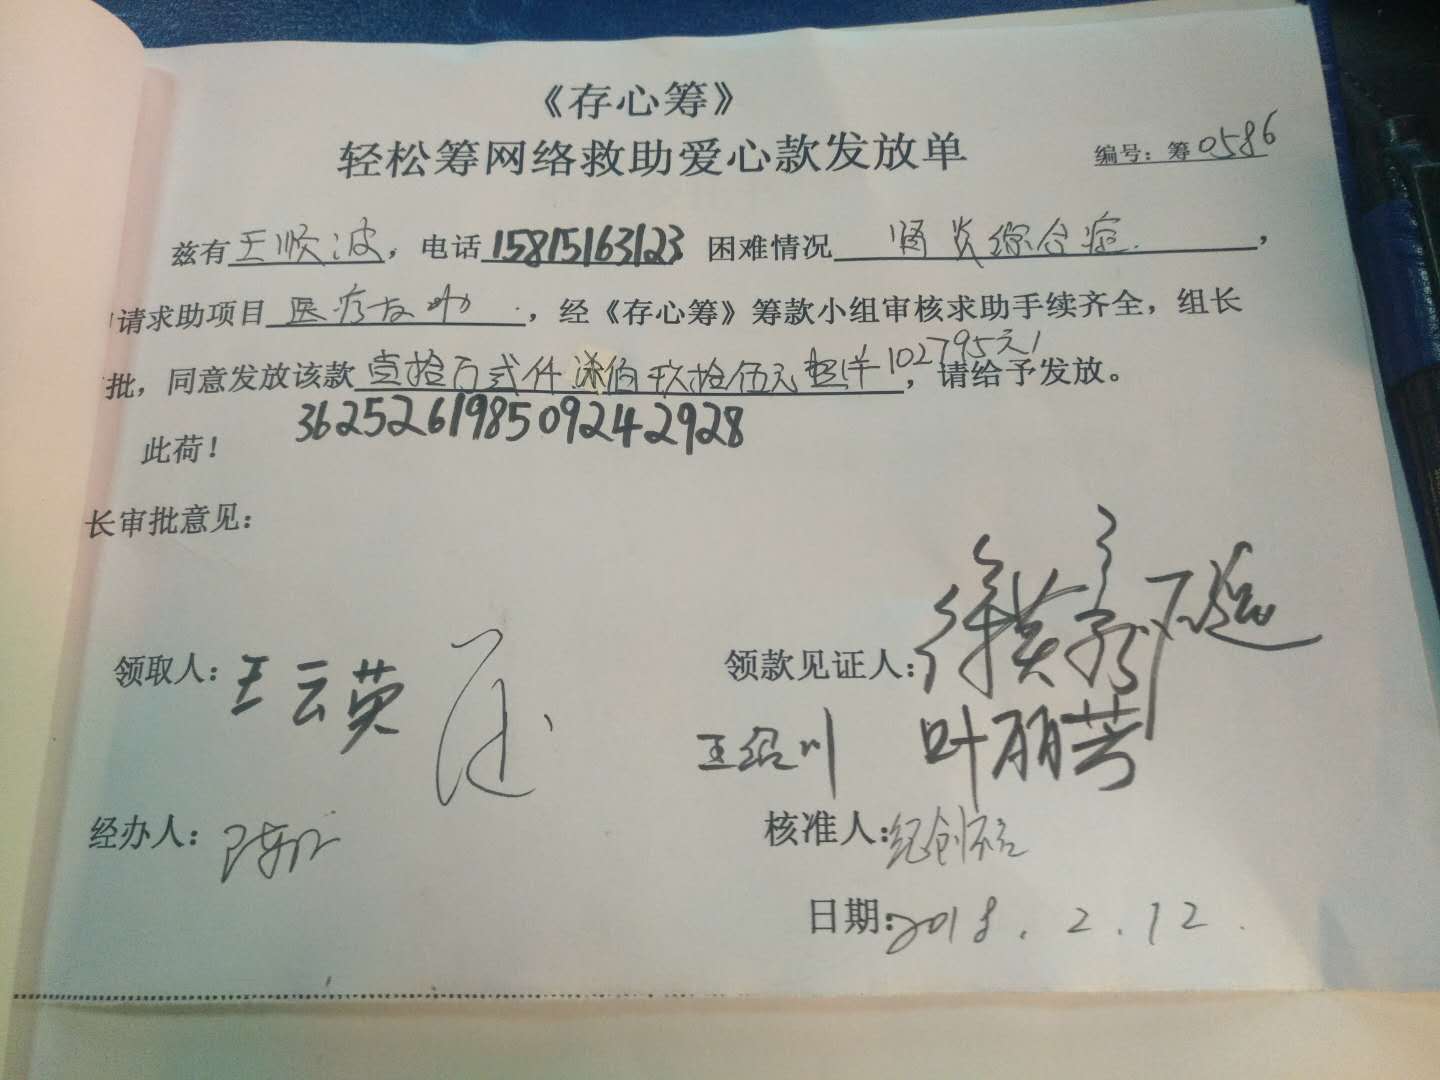 《存心筹》
轻松筹网络救助爱心款发放单
编号：筹0586
兹有王顺波，电话15815163123 困难情况 肾炎综合症，
请求助项目 医疗友助，经《存心筹》筹款小组审核求助手续齐全，组长
批，同意发放该款壹拾万弍仟柒佰玖拾伍元整（￥102795元），请给予发放。
362526198509242928
此荷！
长审批意见：
领取人：王云英
领款见证人：徐英
王绍川 叶丽芳
经办人：陈
核准人：纪创
日期：2018.2.12